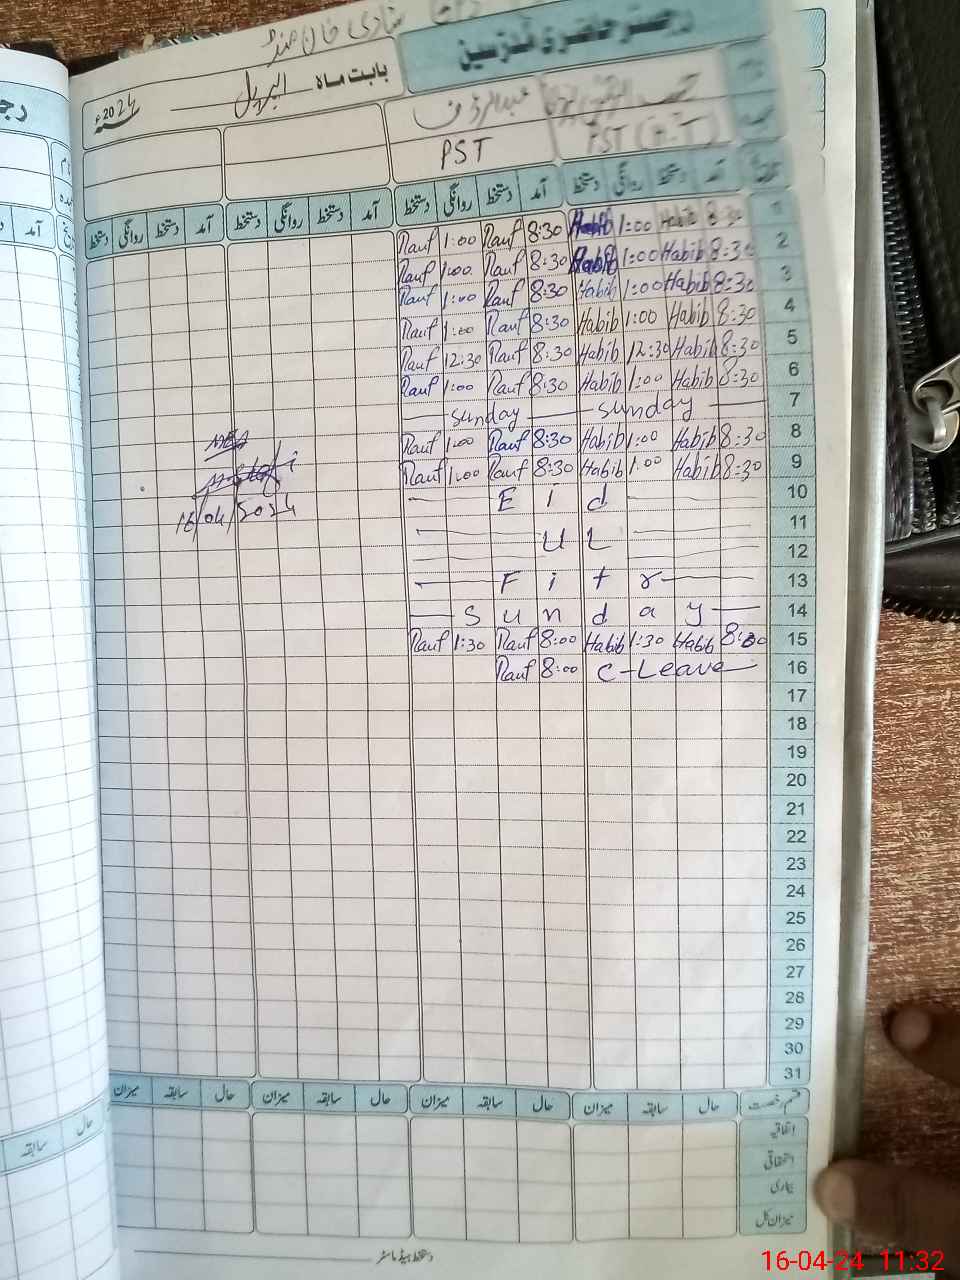 شادی خان منڈ
رجسٹر حاضری مدرسین
بابت ماہ اپریل 2024ء
عبدالرؤف
PST PST (H.T)
تاریخ آمد دستخط روانگی دستخط آمد دستخط روانگی دستخط آمد دستخط روانگی دستخط آمد دستخط روانگی دستخط
1 8:30 Habib 1:00 Habib 8:30 Rauf 1:00 Rauf
2 8:30 Habib 1:00 Habib 8:30 Rauf 1:00 Rauf
3 8:30 Habib 1:00 Habib 8:30 Rauf 1:00 Rauf
4 8:30 Habib 1:00 Habib 8:30 Rauf 1:00 Rauf
5 8:30 Habib 12:30 Habib 8:30 Rauf 12:30 Rauf
6 8:30 Habib 1:00 Habib 8:30 Rauf 1:00 Rauf
7 Sunday Sunday
8 8:30 Habib 1:00 Habib 8:30 Rauf 1:00 Rauf
9 8:30 Habib 1:00 Habib 8:30 Rauf 1:00 Rauf
10 Eid
11 UL
12
13 Fitr
14 Sunday
15 8:00 Habib 1:30 Habib 8:00 Rauf 1:30 Rauf
16 C-Leave 8:00 Rauf
16/04/2024
17
18
19
20
21
22
23
24
25
26
27
28
29
30
31
قسم رخصت حال سابقہ میزان حال سابقہ میزان حال سابقہ میزان حال سابقہ میزان
اتفاقیہ
استحقاقی
بیماری
میزان کل
دستخط ہیڈ ماسٹر
حال سابقہ
16-04-24 11:32